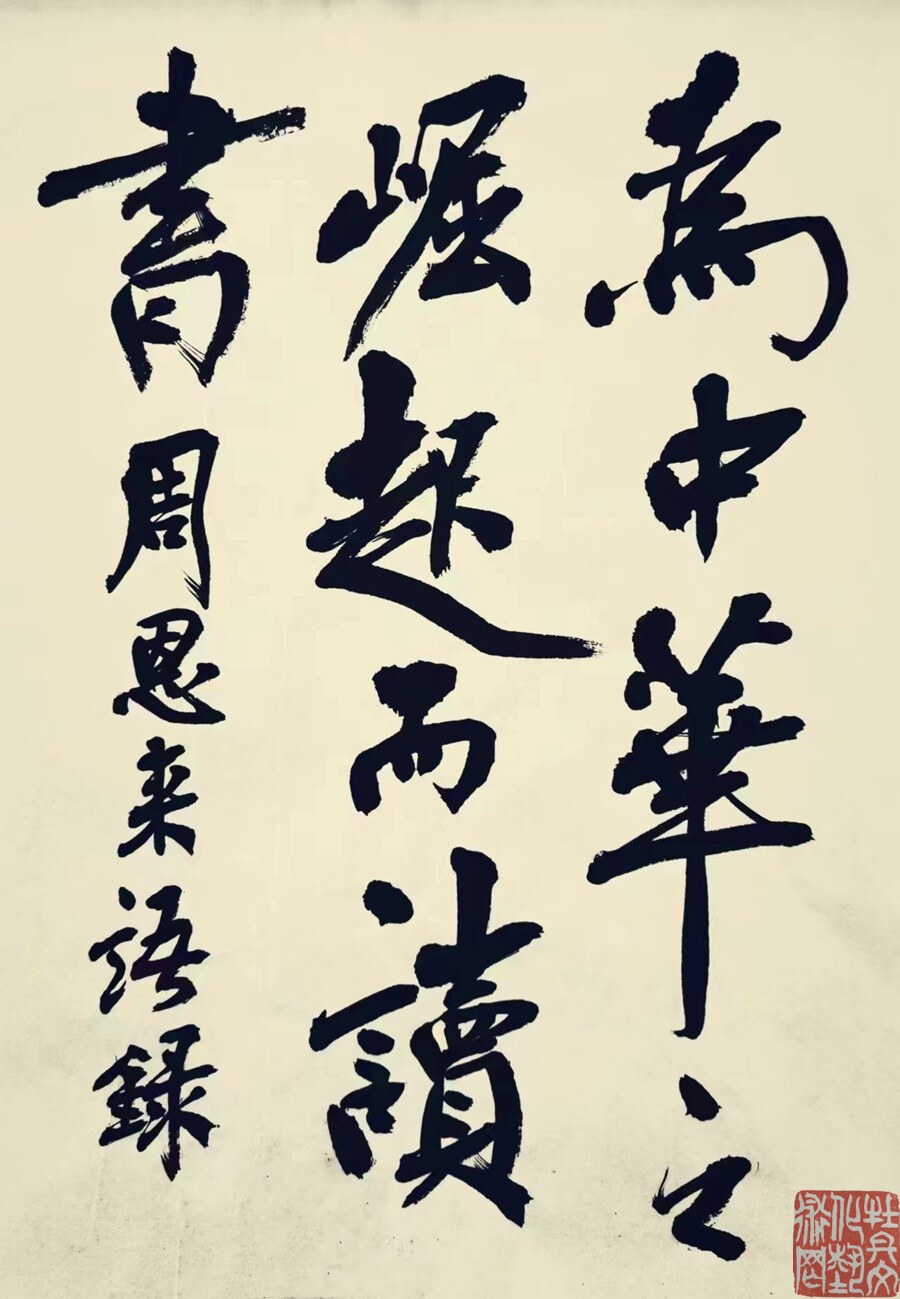 為中華之
崛起而讀
書周恩来語録